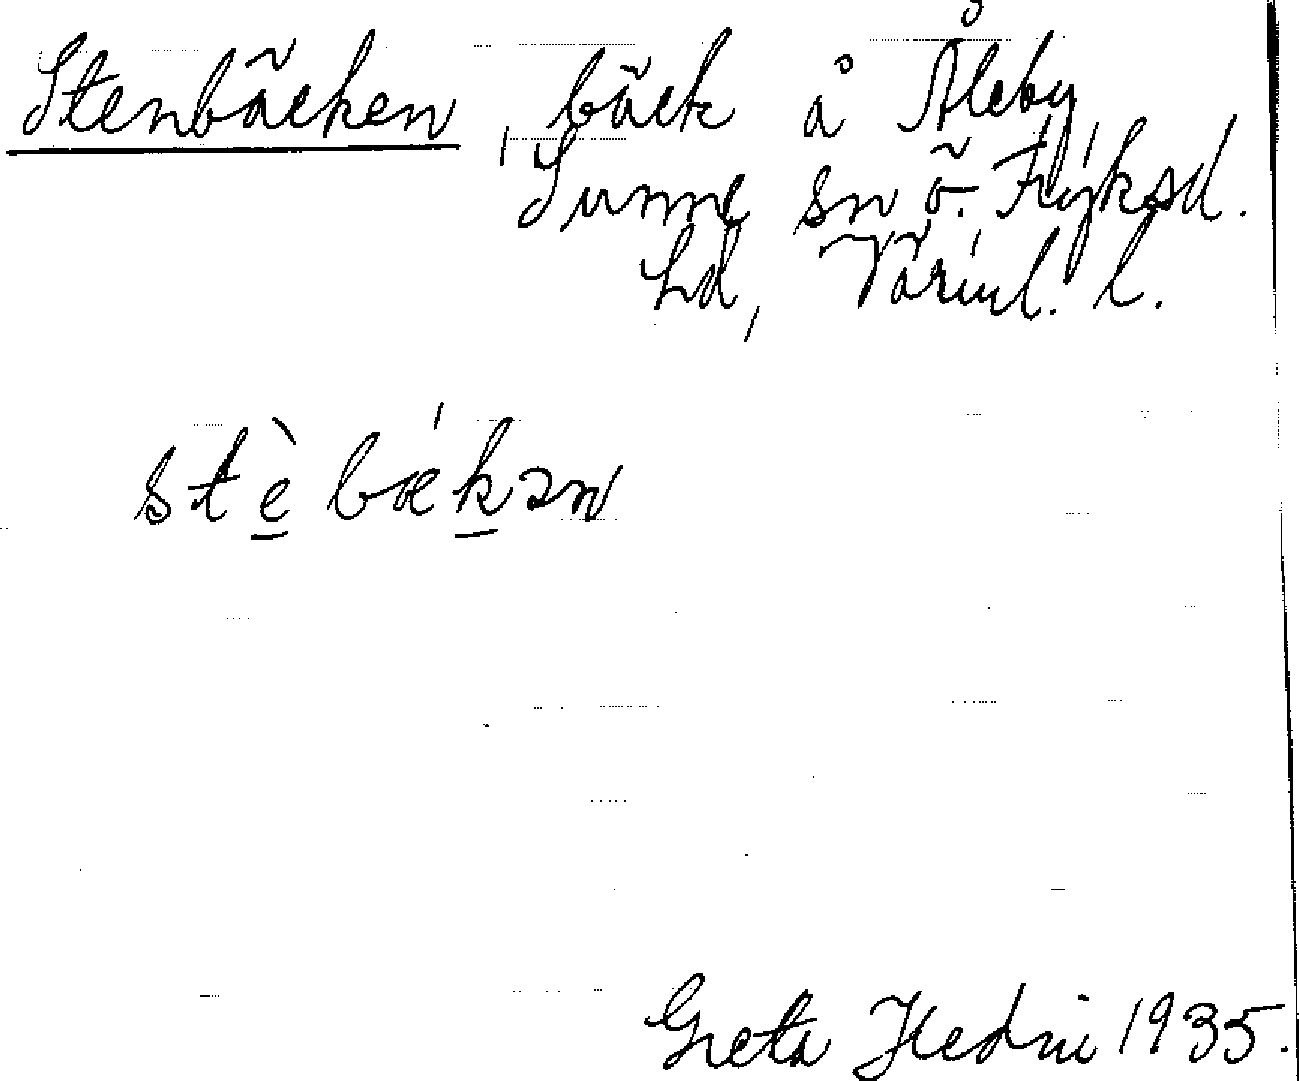 Stenbäcken, bäck å Åleby,
Sunne sn ö. Fryksd.
hd, Värml. l.
stè̠ bǽk̠ən
Greta Hedin 1935.